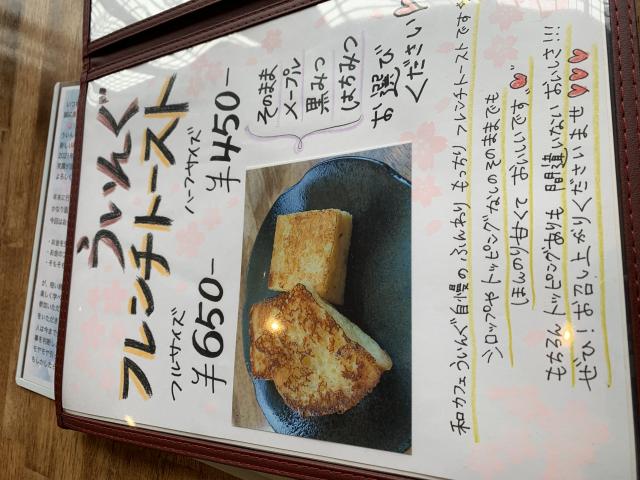 ういんぐ
フレンチトースト
フルサイズ
¥650-
ハーフサイズ
¥450-
そのまま
メープル
黒みつ
はちみつ
お選び
ください
和カフェういんぐ自慢のふんわりもっちりフレンチトーストです
シロップやトッピングなしのそのままでも
ほんのり甘くておいしいです
もちろんトッピングありも間違いないおいしさ!!!
ぜひ!お召し上がりくださいませ